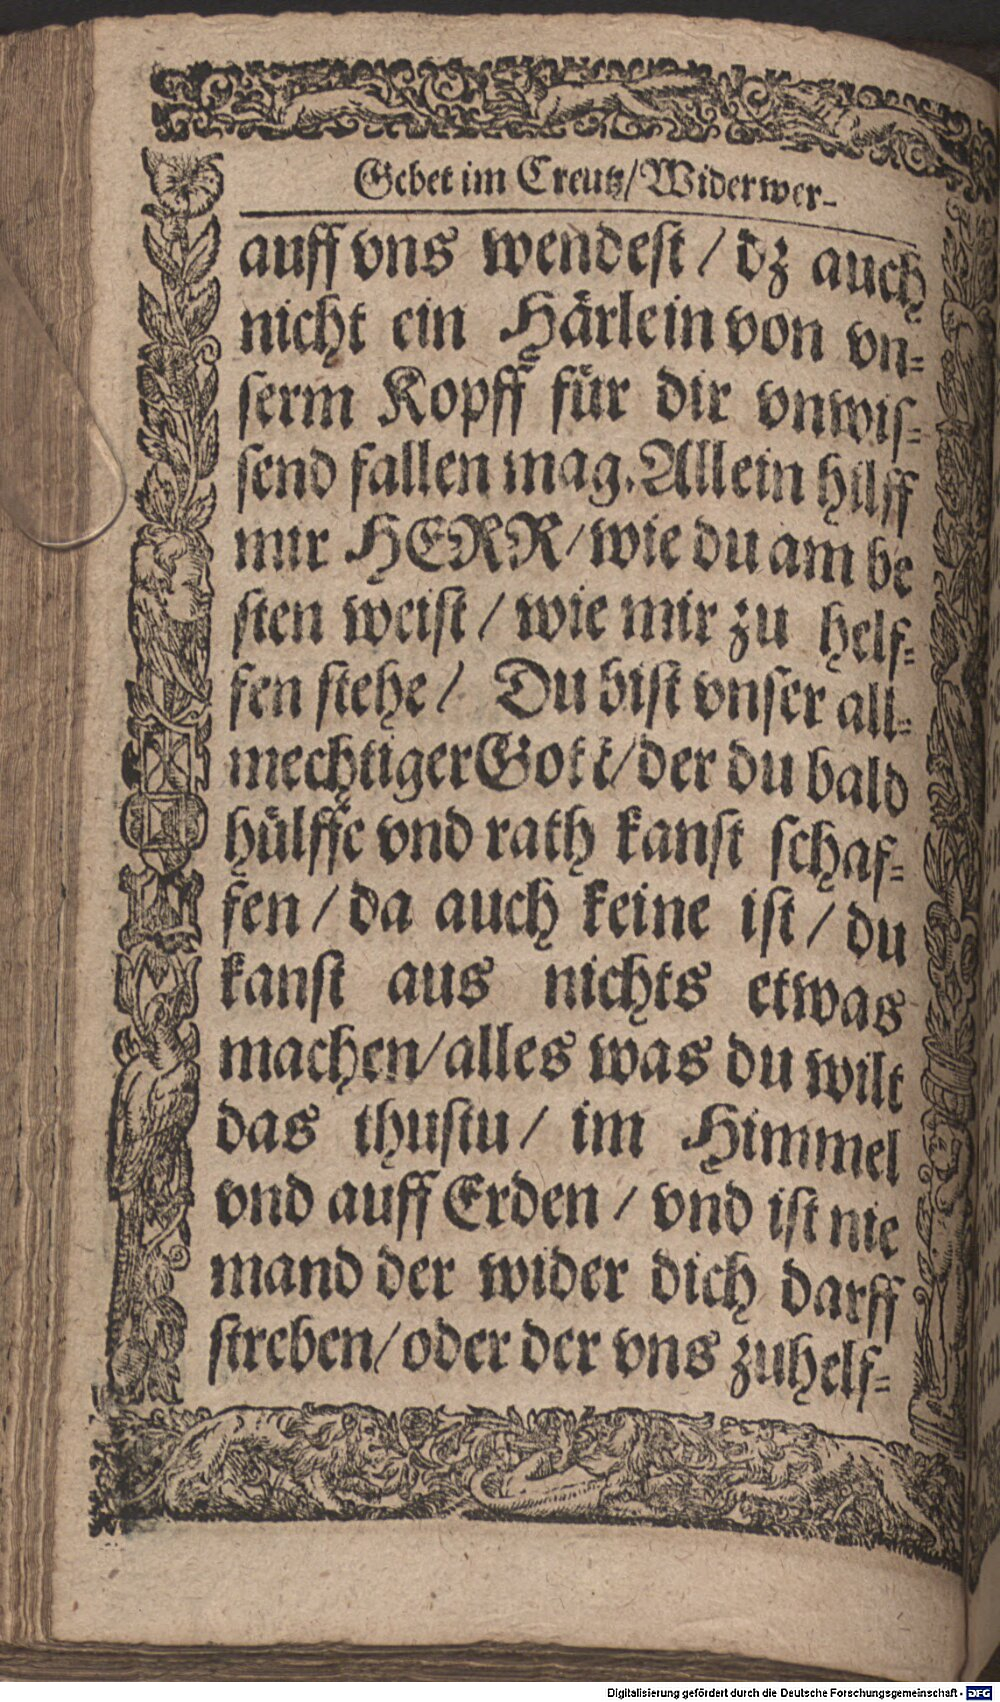 Gebet im Creutz/Widerwer-
auff vns wendest / dz auch
nicht ein Härlein von vn-
serm Kopff für dir vnwis-
send fallen mag. Allein hilff
mir HERR/ wie du am be
sten weist / wie mir zu helf-
fen stehe / Du bist vnser all-
mechtiger Gott/ der du bald
hülffe vnd rath kanst schaf-
fen / da auch keine ist / du
kanst aus nichts etwas
machen/ alles was du wilt
das thustu / im Himmel
vnd auff Erden / vnd ist nie
mand der wider dich darff
streben/ oder der vns zuhelf-
Digitalisierung gefördert durch die Deutsche Forschungsgemeinschaft - DFG